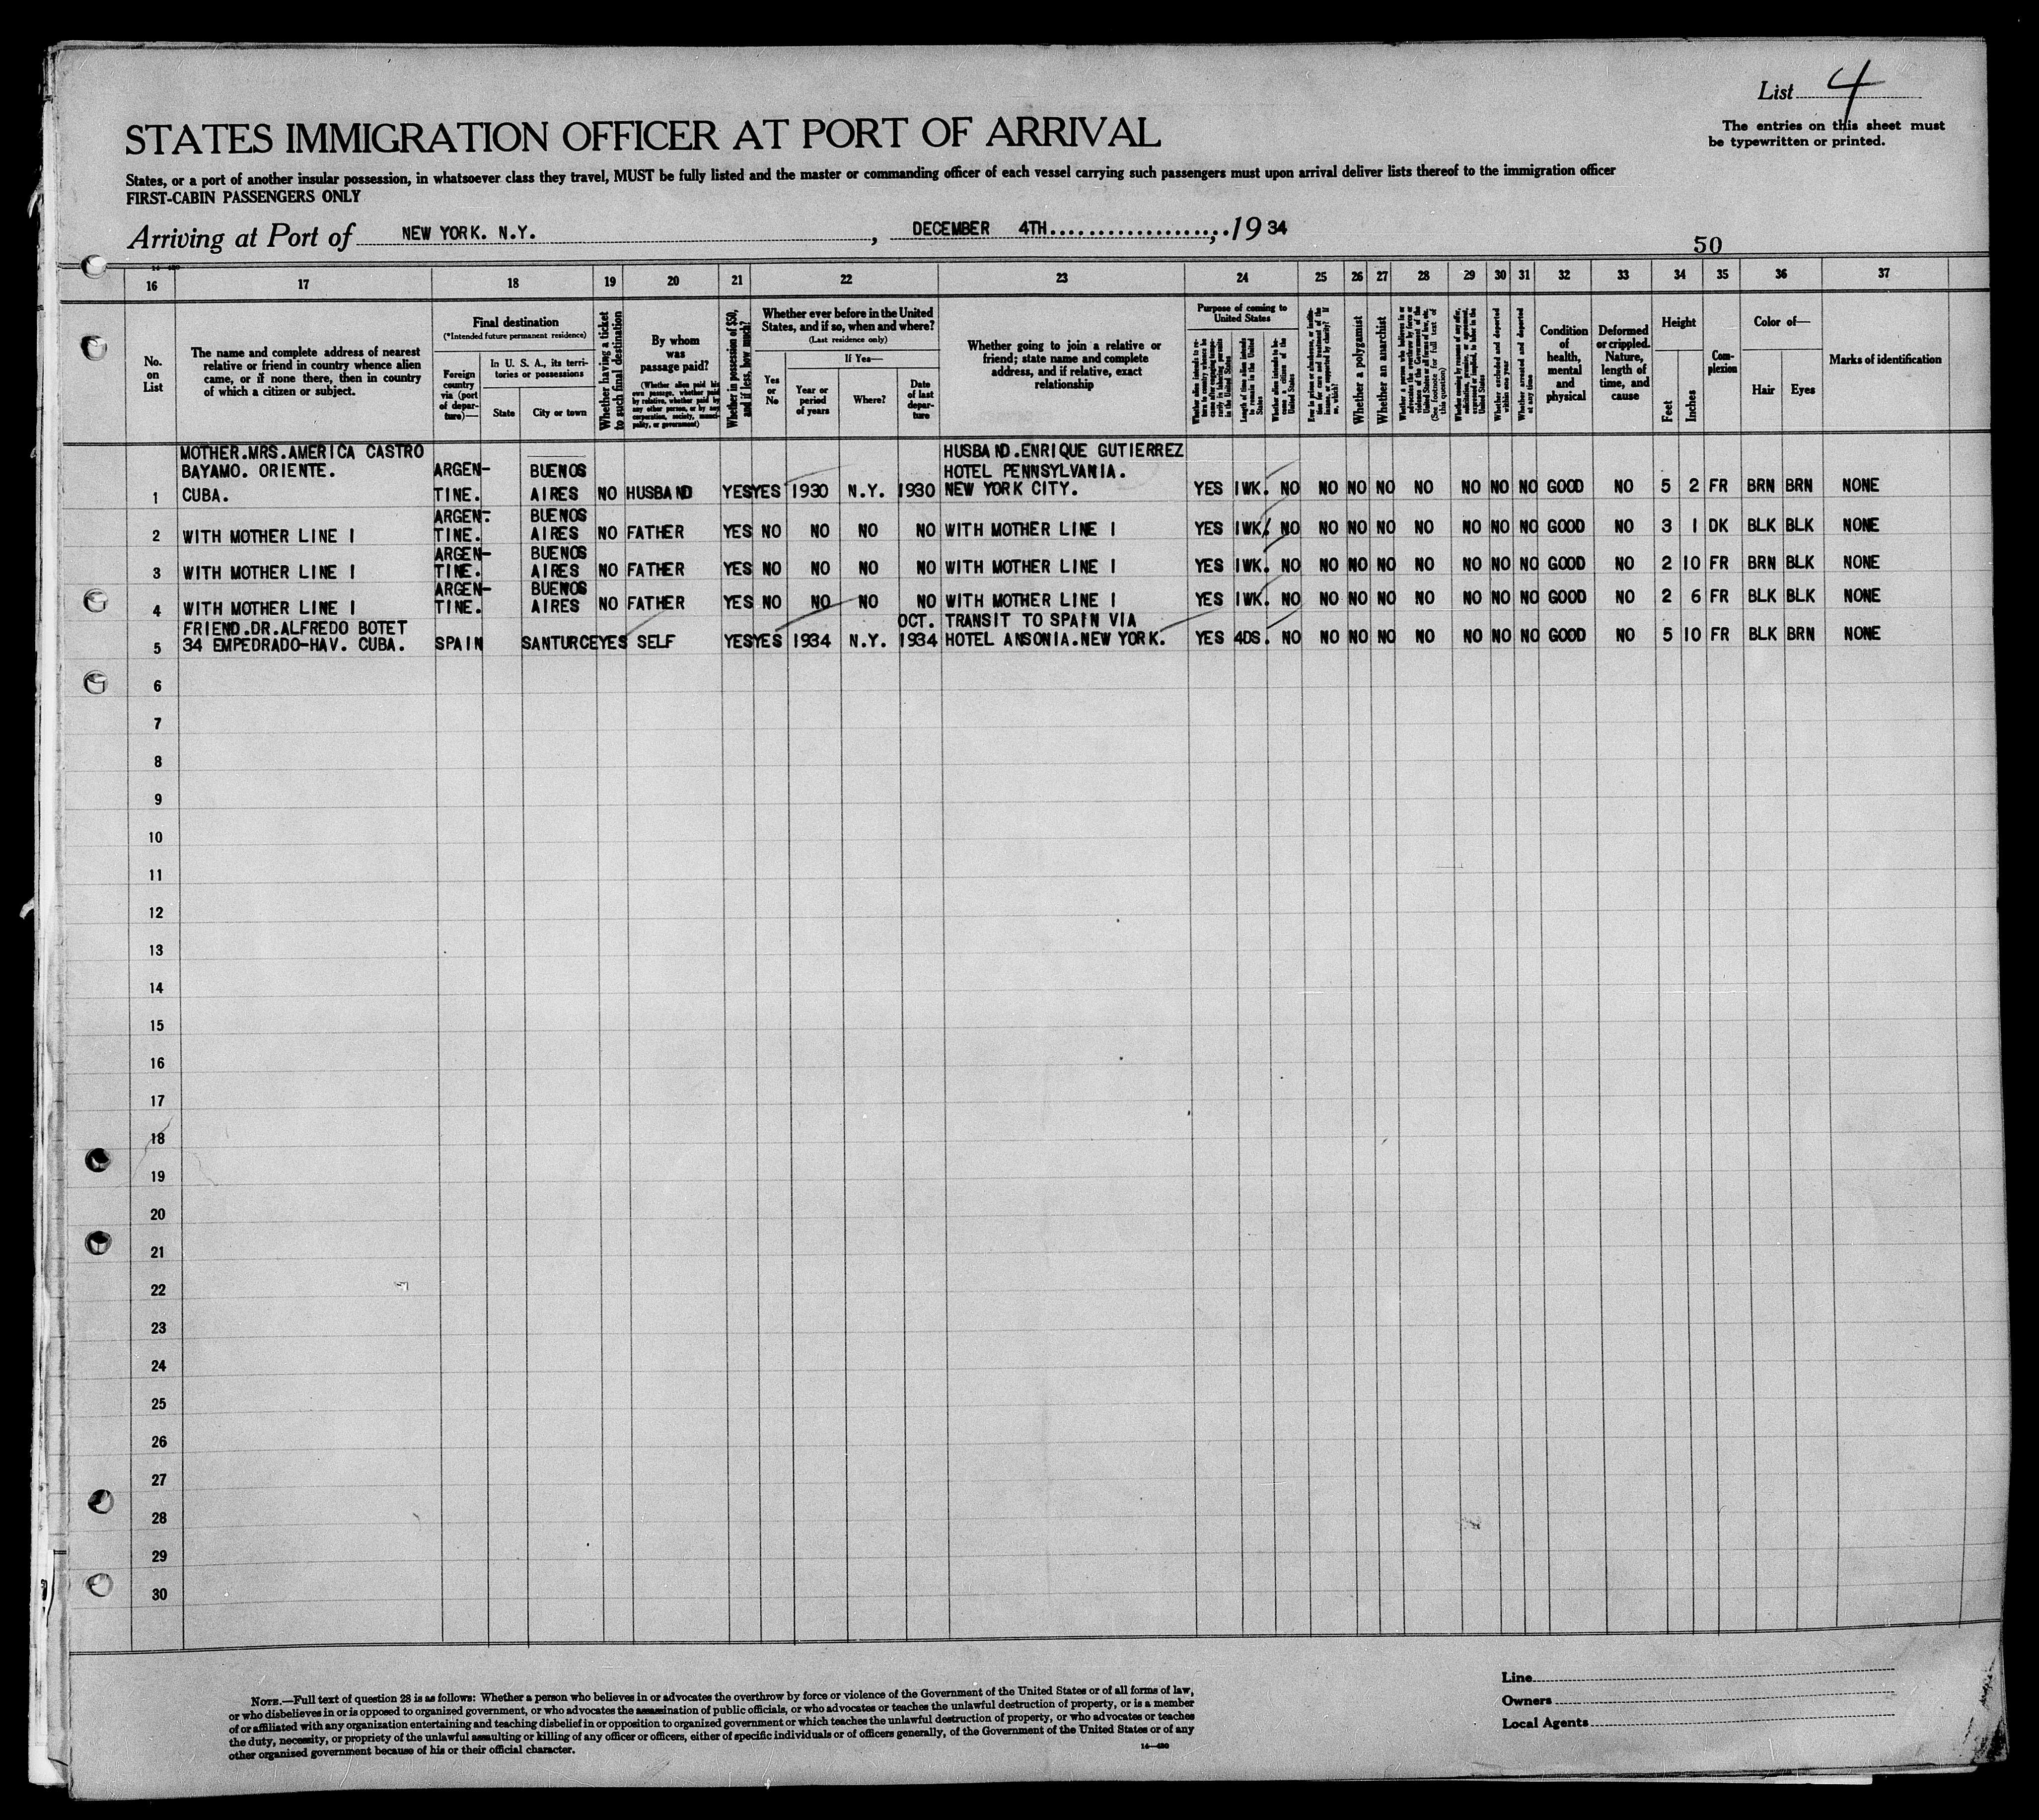 List 4
The entries on this sheet must
be typewritten or printed.
STATES IMMIGRATION OFFICER AT PORT OF ARRIVAL
States, or a port of another insular possession, in whatsoever class they travel, MUST be fully listed and the master or commanding officer of each vessel carrying such passengers must upon arrival deliver lists thereof to the immigration officer
FIRST-CABIN PASSENGERS ONLY
Arriving at Port of NEW YORK. N.Y., DECEMBER 4TH...................., 1934
50
16 17 18 19 20 21 22 23 24 25 26 27 28 29 30 31 32 33 34 35 36 37
No.
on
List
The name and complete address of nearest
relative or friend in country whence alien
came, or if none there, then in country
of which a citizen or subject.
Final destination
(*Intended future permanent residence)
Foreign
country
via (port
of depar-
ture)—
In U. S. A., its terri-
tories or possessions
State
City or town
Whether having a ticket
to such final destination
By whom
was
passage paid?
(Whether alien paid his
own passage, whether paid
by relative, whether paid by
any other person, or by any
corporation, society, munici-
pality, or government)
Whether in possession of $50,
and if less, how much?
Whether ever before in the United
States, and if so, when and where?
(Last residence only)
Yes
or
No
If Yes—
Year or
period
of years
Where?
Date
of last
depar-
ture
Whether going to join a relative or
friend; state name and complete
address, and if relative, exact
relationship
Purpose of coming to
United States
Length of time alien intends
to remain in the United
States
Whether alien intends to be-
come a citizen of the
United States
Whether a polygamist
Whether an anarchist
(See footnote for full text of
this question)
Whether excluded and deported
within one year
Whether arrested and deported
at any time
Condition
of
health,
mental
and
physical
Deformed
or crippled.
Nature,
length of
time, and
cause
Height
Feet
Inches
Com-
plexion
Color of—
Hair
Eyes
Marks of identification
MOTHER.MRS.AMERICA CASTRO HUSBAND.ENRIQUE GUTIERREZ
BAYAMO. ORIENTE. ARGEN- BUENOS HOTEL PENNSYLVANIA.
1 CUBA. TINE. AIRES NO HUSBAND YES YES 1930 N.Y. 1930 NEW YORK CITY. YES 1WK. NO NO NO NO NO NO NO NO GOOD NO 5 2 FR BRN BRN NONE
ARGEN- BUENOS
2 WITH MOTHER LINE 1 TINE. AIRES NO FATHER YES NO NO NO NO WITH MOTHER LINE 1 YES 1WK. NO NO NO NO NO NO NO NO GOOD NO 3 1 DK BLK BLK NONE
ARGEN- BUENOS
3 WITH MOTHER LINE 1 TINE. AIRES NO FATHER YES NO NO NO NO WITH MOTHER LINE 1 YES 1WK. NO NO NO NO NO NO NO NO GOOD NO 2 10 FR BRN BLK NONE
ARGEN- BUENOS
4 WITH MOTHER LINE 1 TINE. AIRES NO FATHER YES NO NO NO NO WITH MOTHER LINE 1 YES 1WK. NO NO NO NO NO NO NO NO GOOD NO 2 6 FR BLK BLK NONE
FRIEND.DR.ALFREDO BOTET OCT. TRANSIT TO SPAIN VIA
5 34 EMPEDRADO-HAV. CUBA. SPAIN SANTURCE YES SELF YES YES 1934 N.Y. 1934 HOTEL ANSONIA.NEW YORK. YES 4DS. NO NO NO NO NO NO NO NO GOOD NO 5 10 FR BLK BRN NONE
6
7
8
9
10
11
12
13
14
15
16
17
18
19
20
21
22
23
24
25
26
27
28
29
30
NOTE.—Full text of question 28 is as follows: Whether a person who believes in or advocates the overthrow by force or violence of the Government of the United States or of all forms of law,
or who disbelieves in or is opposed to organized government, or who advocates the assassination of public officials, or who advocates or teaches the unlawful destruction of property, or is a member
of or affiliated with any organization entertaining and teaching disbelief in or opposition to organized government or which teaches the unlawful destruction of property, or who advocates or teaches
the duty, necessity, or propriety of the unlawful assaulting or killing of any officer or officers, either of specific individuals or of officers generally, of the Government of the United States or of any
other organized government because of his or their official character.
14—430
Line
Owners
Local Agents